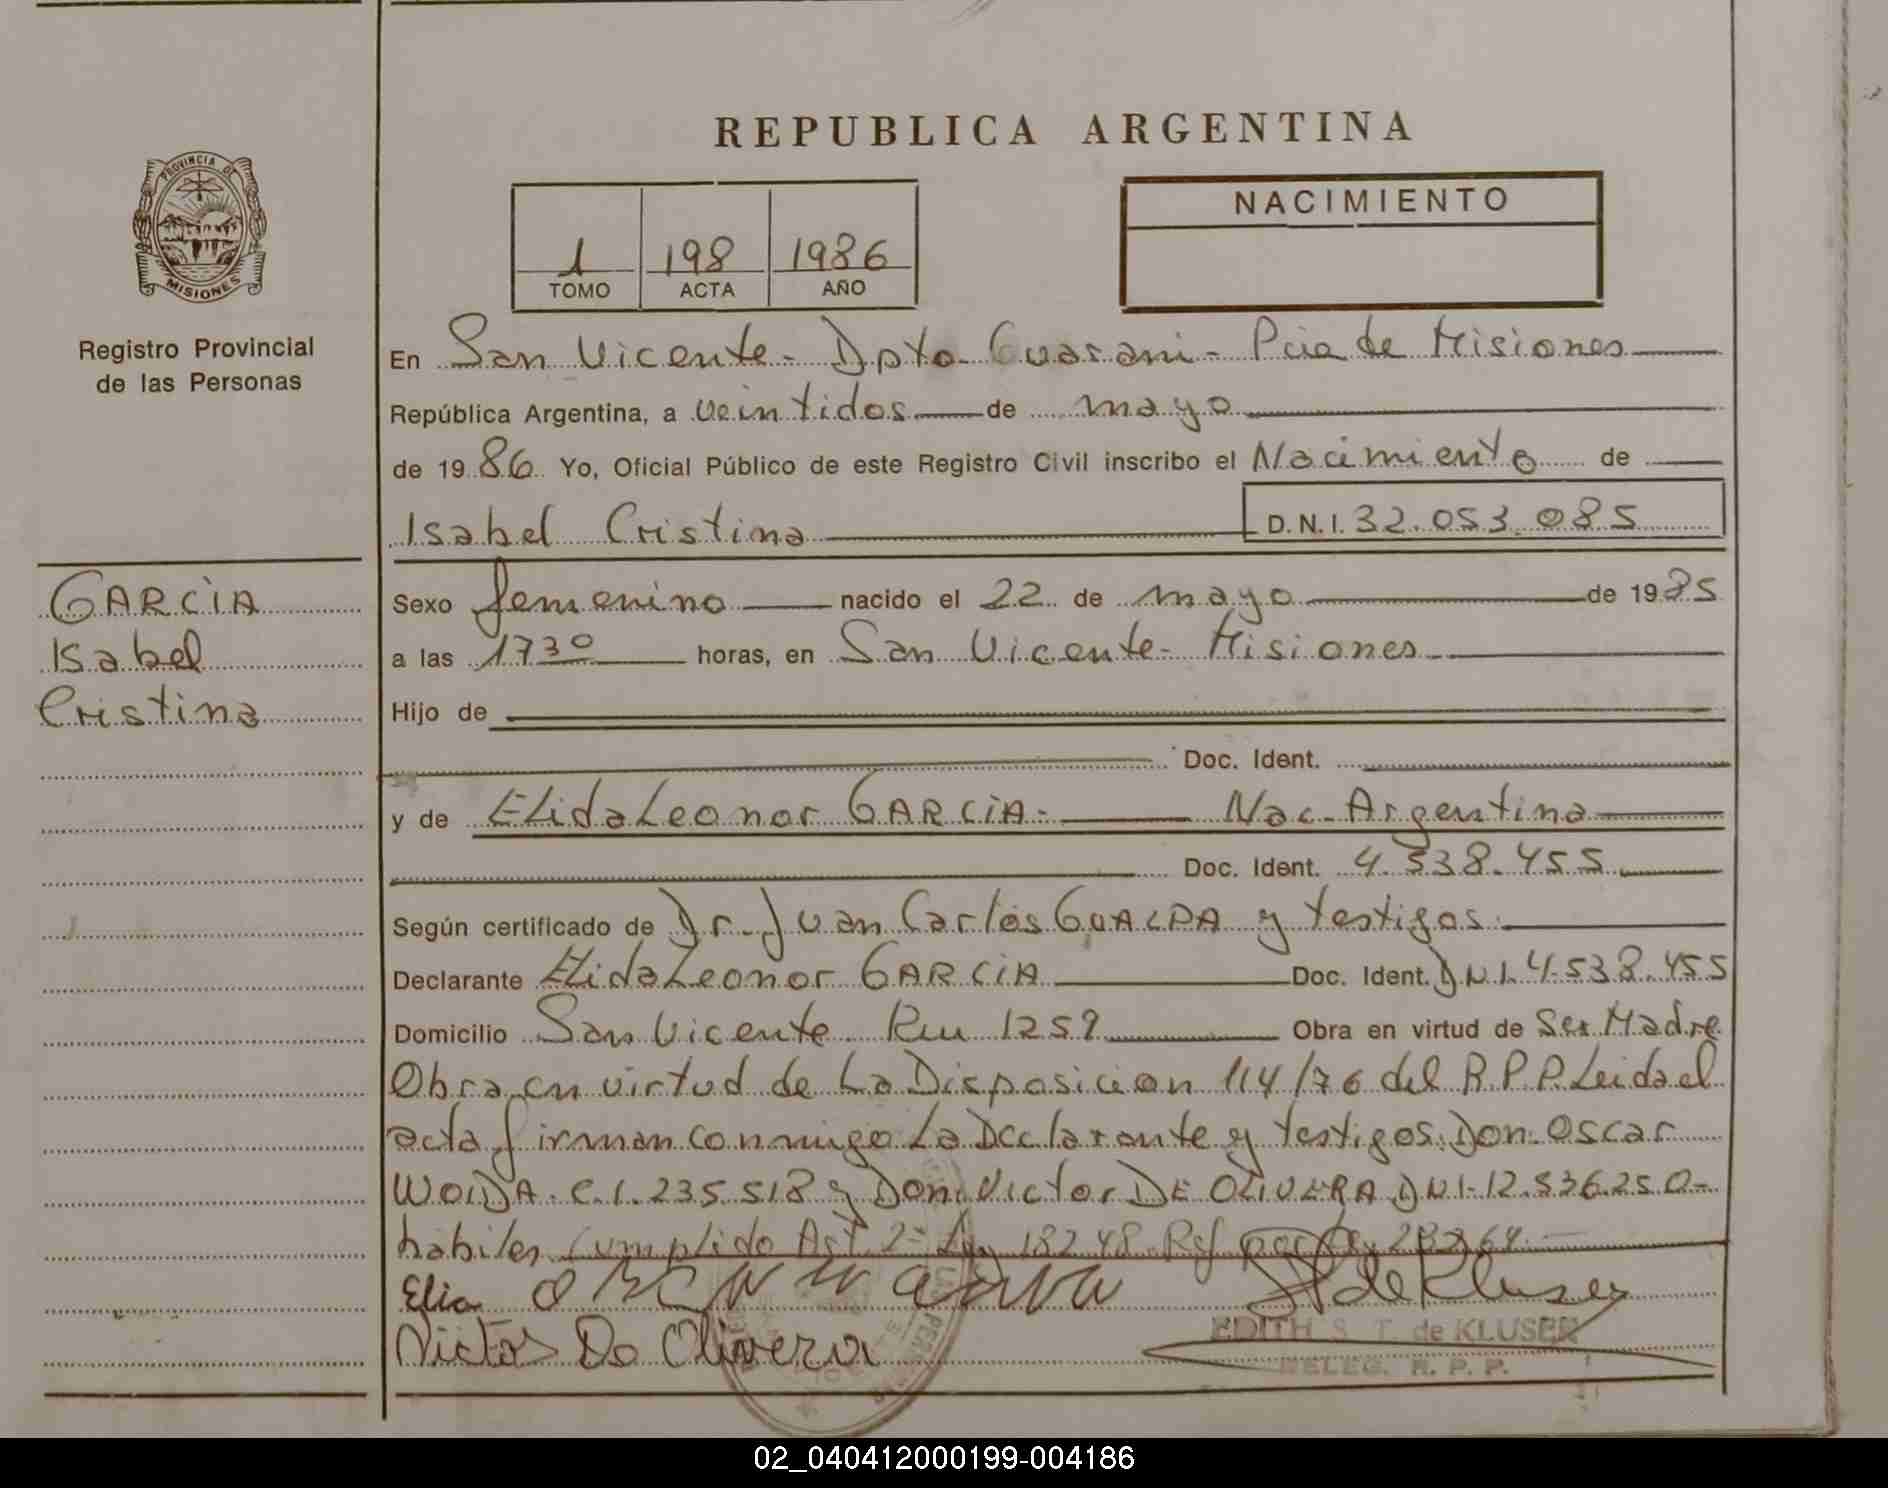 REPUBLICA ARGENTINA
PROVINCIA DE
MISIONES
Registro Provincial
de las Personas
1 198 1986
TOMO ACTA AÑO
NACIMIENTO
En San Vicente - Dpto Guarani - Pcia de Misiones
República Argentina, a veintidos de mayo
de 1986 Yo, Oficial Público de este Registro Civil inscribo el Nacimiento de
Isabel Cristina D.N.I. 32.053.085
GARCÌA
Isabel
Cristina
Sexo femenino nacido el 22 de mayo de 1985
a las 1730 horas, en San Vicente - Misiones
Hijo de
Doc. Ident.
y de Elida Leonor GARCÌA - Nac. Argentina
Doc. Ident. 4.538.455
Según certificado de Dr. Juan Carlos GUALPA y testigos.
Declarante Elida Leonor GARCÌA Doc. Ident. DNI. 4.538.455
Domicilio San Vicente Km 1259 Obra en virtud de Ser Madre
Obra en virtud de La Disposicion 114/76 del R.P.P. Leida el
acta firman conmigo La Declarante y testigos: Don Oscar
WOIDA. C.I. 235.518 y Don Victor DE OLIVERA DNI-12.536.250-
habiles Cumplido Art. 2= Ley 18248
Elia
Victor De Olivera
EDITH S. T. de KLUSER
DELEG. R. P. P.
02_040412000199-004186